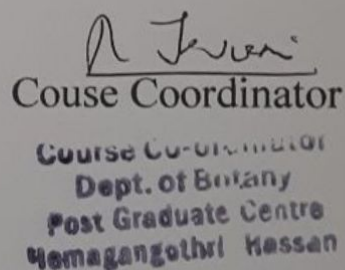 Couse Coordinator
Course Co-ordinator
Dept. of Botany
Post Graduate Centre
Hemagangothri Hassan